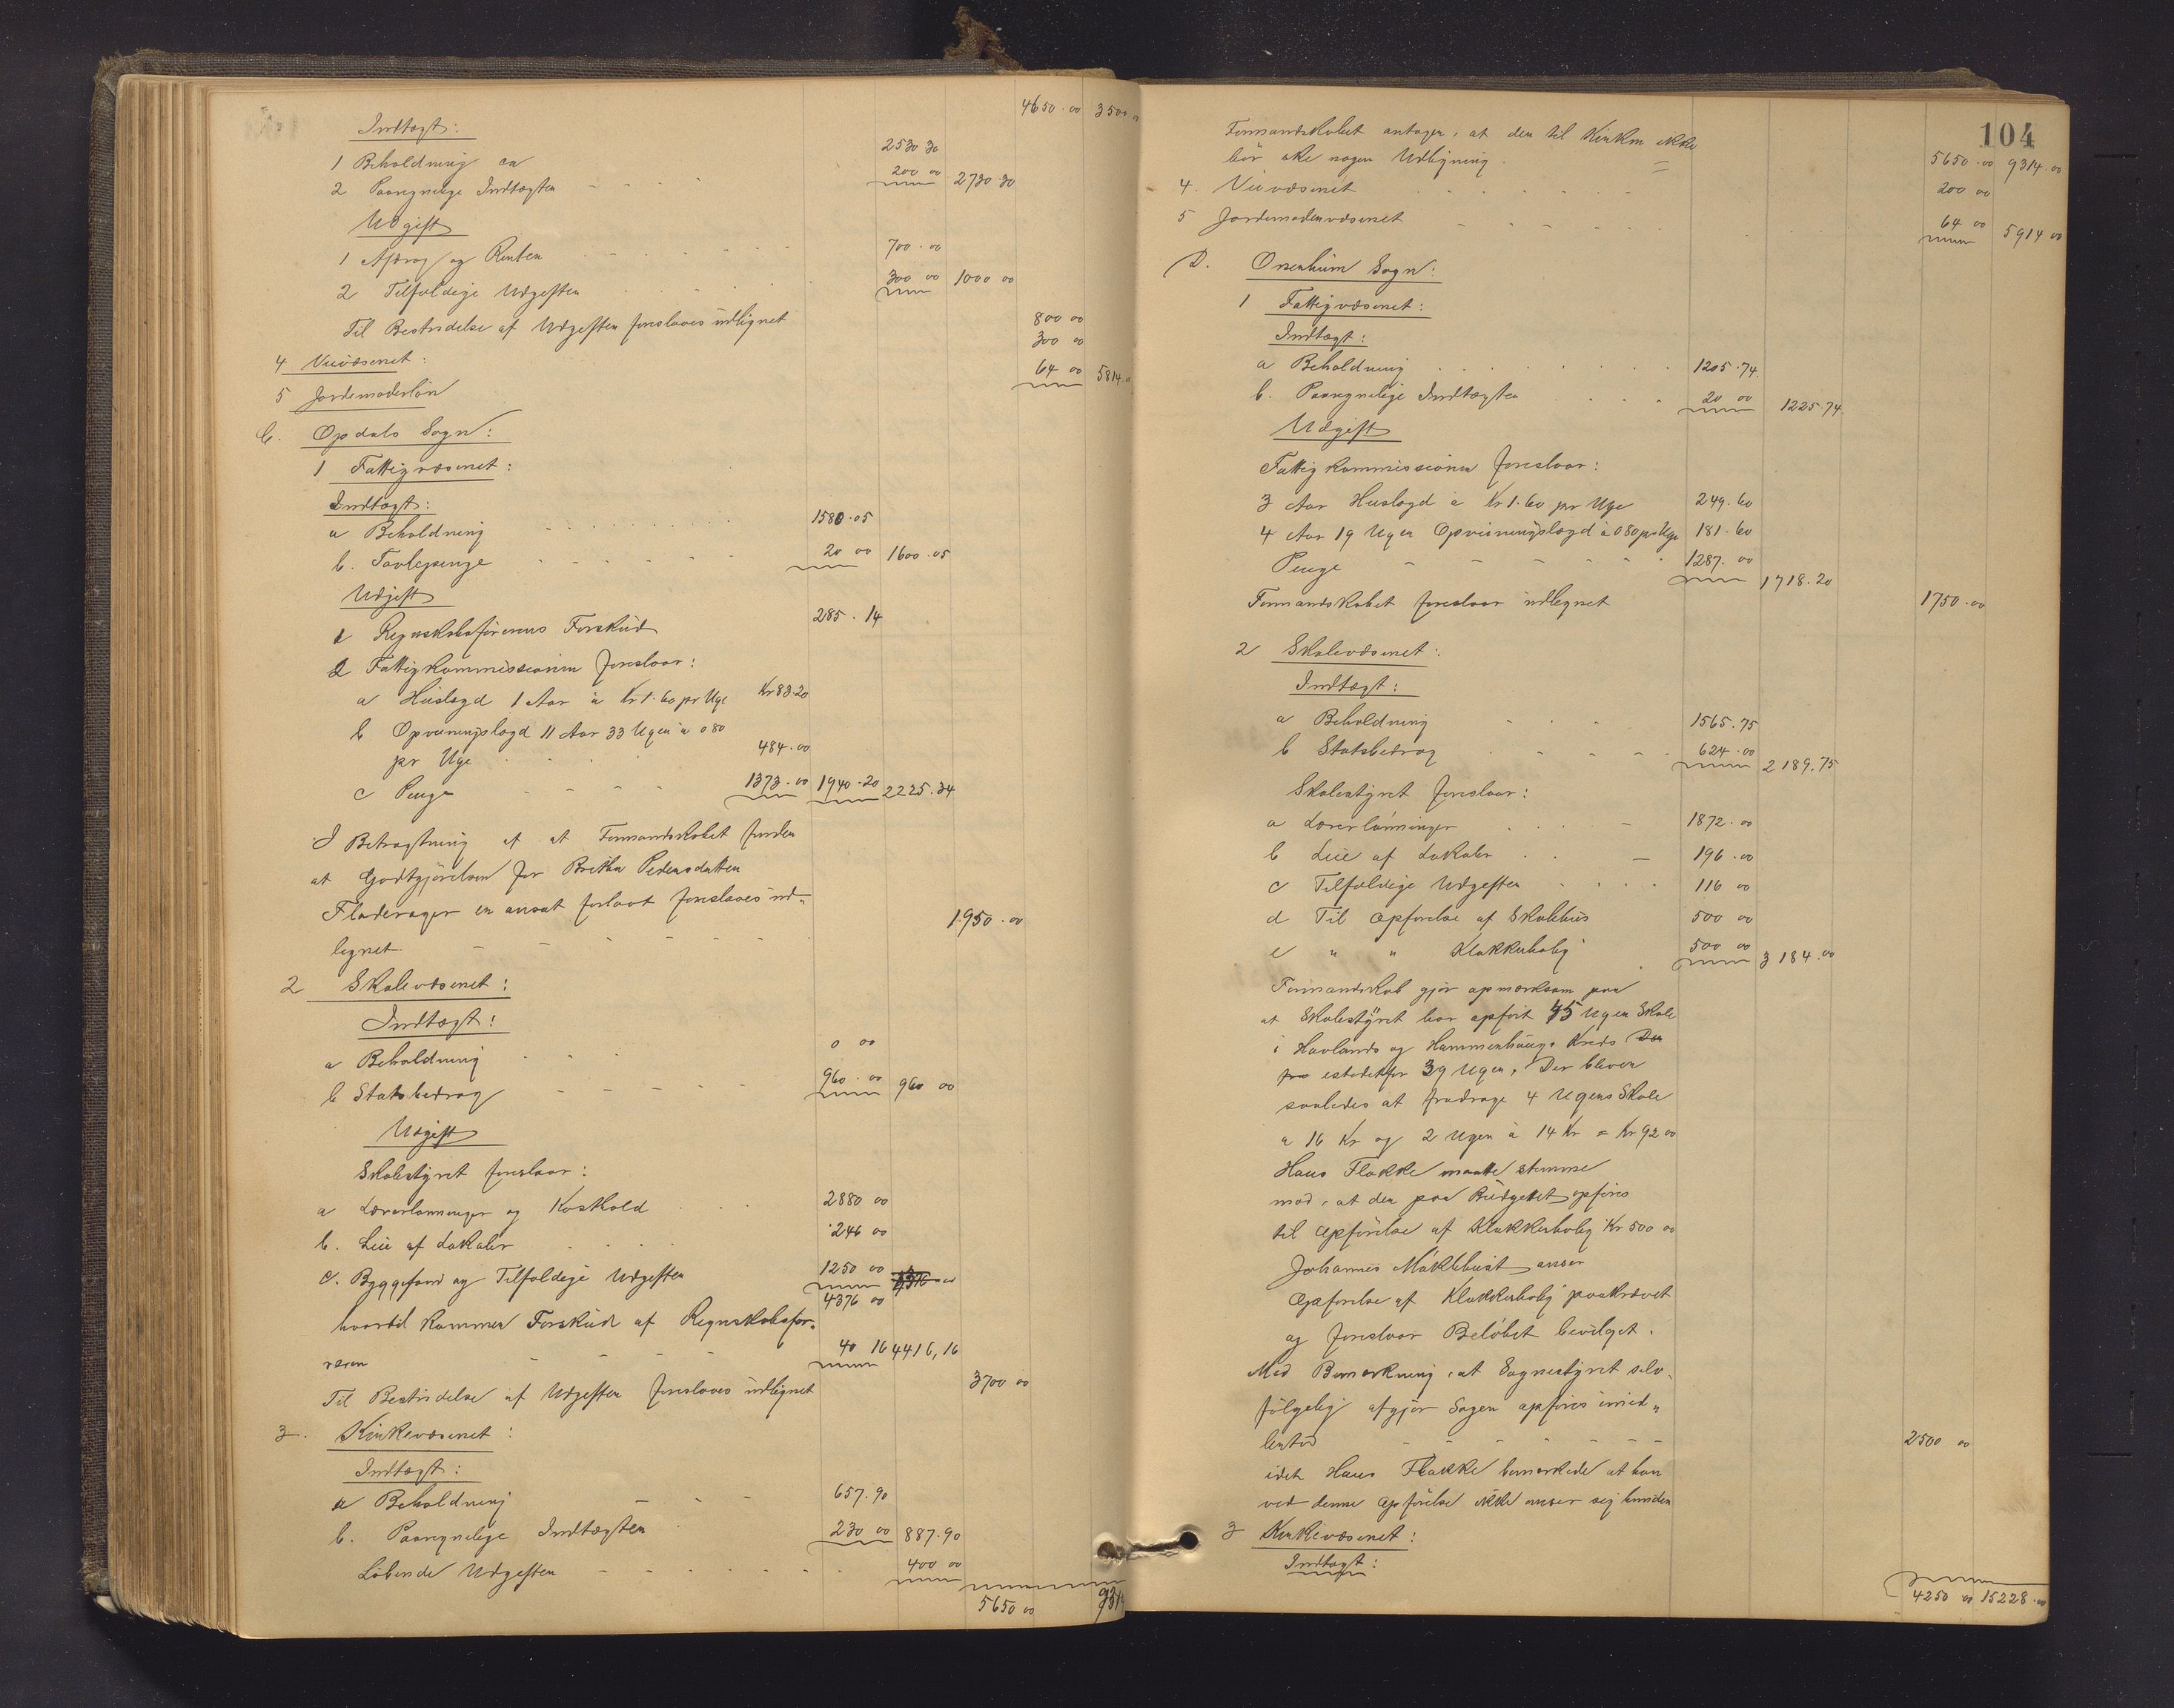 4650.00 3500
Indtægt:
1 Beholdning ca 2530 30
2 Paaregnelige Indtægter 200 00 2730 30
Udgift
1 Afdrag og Renter 700.00
2 Tilfældige Udgifter 300 00 1000 00
Til Bestridelse af Udgifter foreslaaes udlignet 800 00
4 Veivæsenet: 300 00
5 Jordemoderløn 64 00 5814.
C. Opdals Sogn:
1 Fattigvæsenet:
Indtægt:
a Beholdning 1580.05
b. Tavlepenge 20 00 1600.05
Udgift
1 Regnskabsførerens Forskud 285.14
2 Fattigkommissionen foreslaar:
a Huslægd 1 Aar à Kr 1.60 pr Uge Kr 83.20
b Opvisningslægd 11 Aar 33 Uger à 080
pr Uge 484.00
c Penge 1373.00 1940.20 2225.34
I Betragtning af at Formandskabet finder
at Godtgjørelsen for Brithe Pedersdatter
er ansat forlavt foreslaaes ud-
lignet 1950.00
2 Skolevæsenet:
Indtægt:
a Beholdning 0 00
b Statsbidrag 960.00 960 00
Udgift
Skolestyret foreslaar:
a Lærerlønninger og Kosthold 2880 00
b. Leie af Lokaler 246 00
c. Byggefond og Tilfældige Udgifter 1250 00
4376 00
hvortil kommer Forskud af Regnskabsfø-
reren 40 16 4416,16
Til Bestridelse af Udgifter foreslaaes udlignet 3700 00
3. Kirkevæsenet:
Indtægt:
a Beholdning 657.90
b. Paaregnelige Indtægter 230 00 887.90
Løbende Udgifter 400 00
5650 00 9314
104
Formandskabet antager, at der til Kirken ikke
bør ske nogen Udligning. 5650.00 9314.00
4. Veivæsenet 200 00
5 Jordemodervæsenet 64 00 5914 00
D. Orsenhim Sogn:
1 Fattigvæsenet:
Indtægt:
a Beholdning 1205.74
b. Paaregnelige Indtægter 20 00 1225.74
Udgift
Fattigkommissionen foreslaar:
3 Aar Huslægd à Kr 1.60 pr Uge 249.60
4 Aar 19 Uger Opvisningslægd à 080 pr Uge 181.60
Penge 1287.00 1718.20
Formandskabet foreslaar udlignet 1750.00
2 Skolevæsenet:
Indtægt:
a Beholdning 1565.75
b Statsbidrag 624.00 2189.75
Skolestyret foreslaar:
a Lærerlønninger 1872.00
b Leie af Lokaler 196.00
c Tilfældige Udgifter 116 00
d Til Opførelse af Skolehus 500 00
e " " Klokkerbolig 500 00 3184.00
Formandskab gjør opmærksom paa
at Skolestyret har opført 45 Uger Skole
i Havlands og Hammershaugs Kreds Der
for istedetfor 39 Uger. Der bliver
saaledes at fradrage 4 Ugers Skole
a 16 Kr og 2 Uger à 14 Kr = Kr 92 00
Hans Flakke maatte stemme
mod, at der paa Budgettet opføres
til Opførelse af Klokkerbolig Kr 500 00
Johannes Mäklebust anser
Opførelse af Klokkerbolig paakrævet
og foreslaar Beløbet bevilget.
Med Bemærkning, at Sognestyret selv-
følgelig afgjør Sagen opføres imid-
lertid 2500 00
idet Hans Flakke bemærkede at han
ved denne Opførelse ikke anser sig bunden
3 Kirkevæsenet:
Indtægt:
4250 00 15228.00